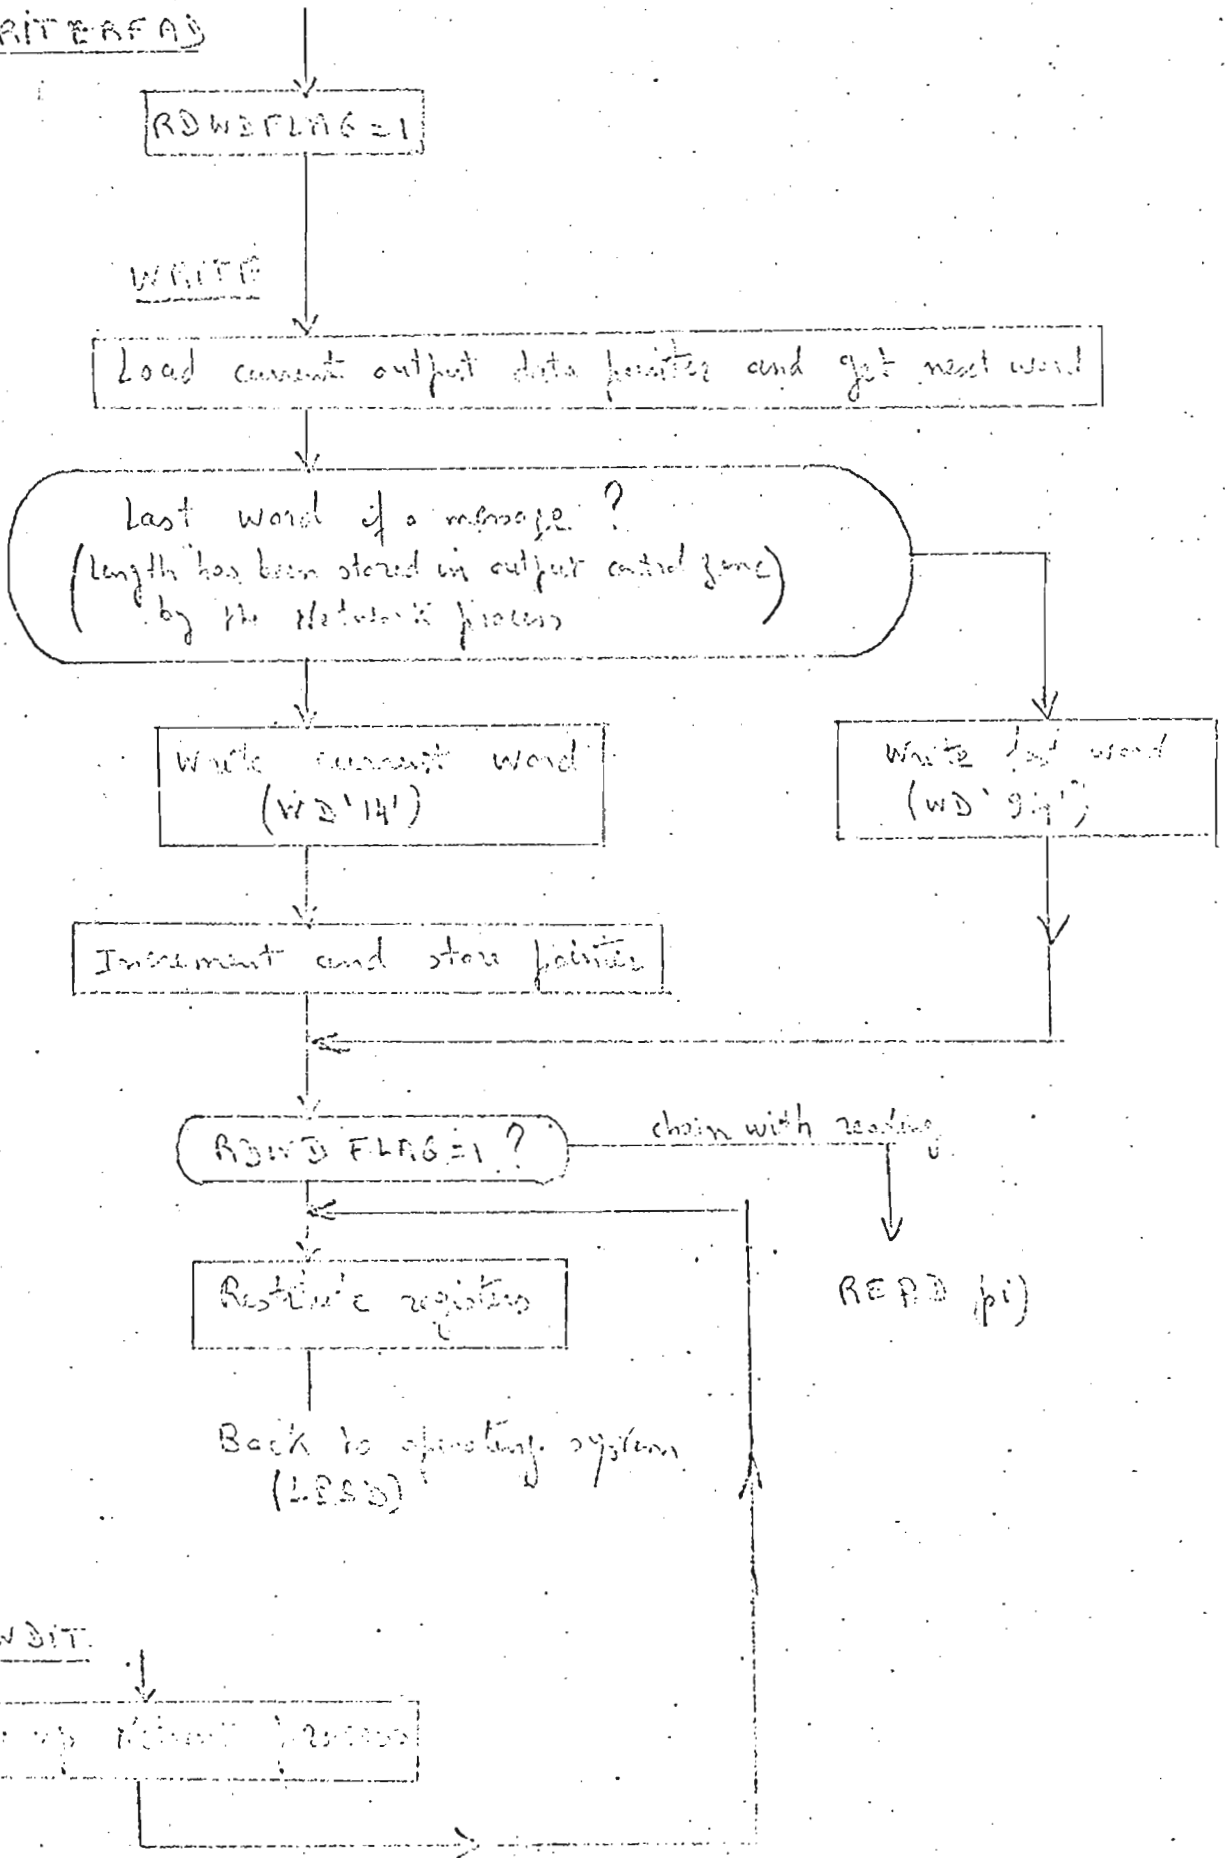 RITEREAD
RDWDFLAG=1
WRITE
Load current output data pointer and get next word
Last word of a message ?
(Length has been stored in output control zone)
by the Network process
Write current word
(WD'14')
Write last word
(WD'94')
Increment and store pointer
RDWD FLAG=1 ?
chain with reading
Restitute registers
READ pi)
Back to operating system
(LPSD)
WDIT
up Network process